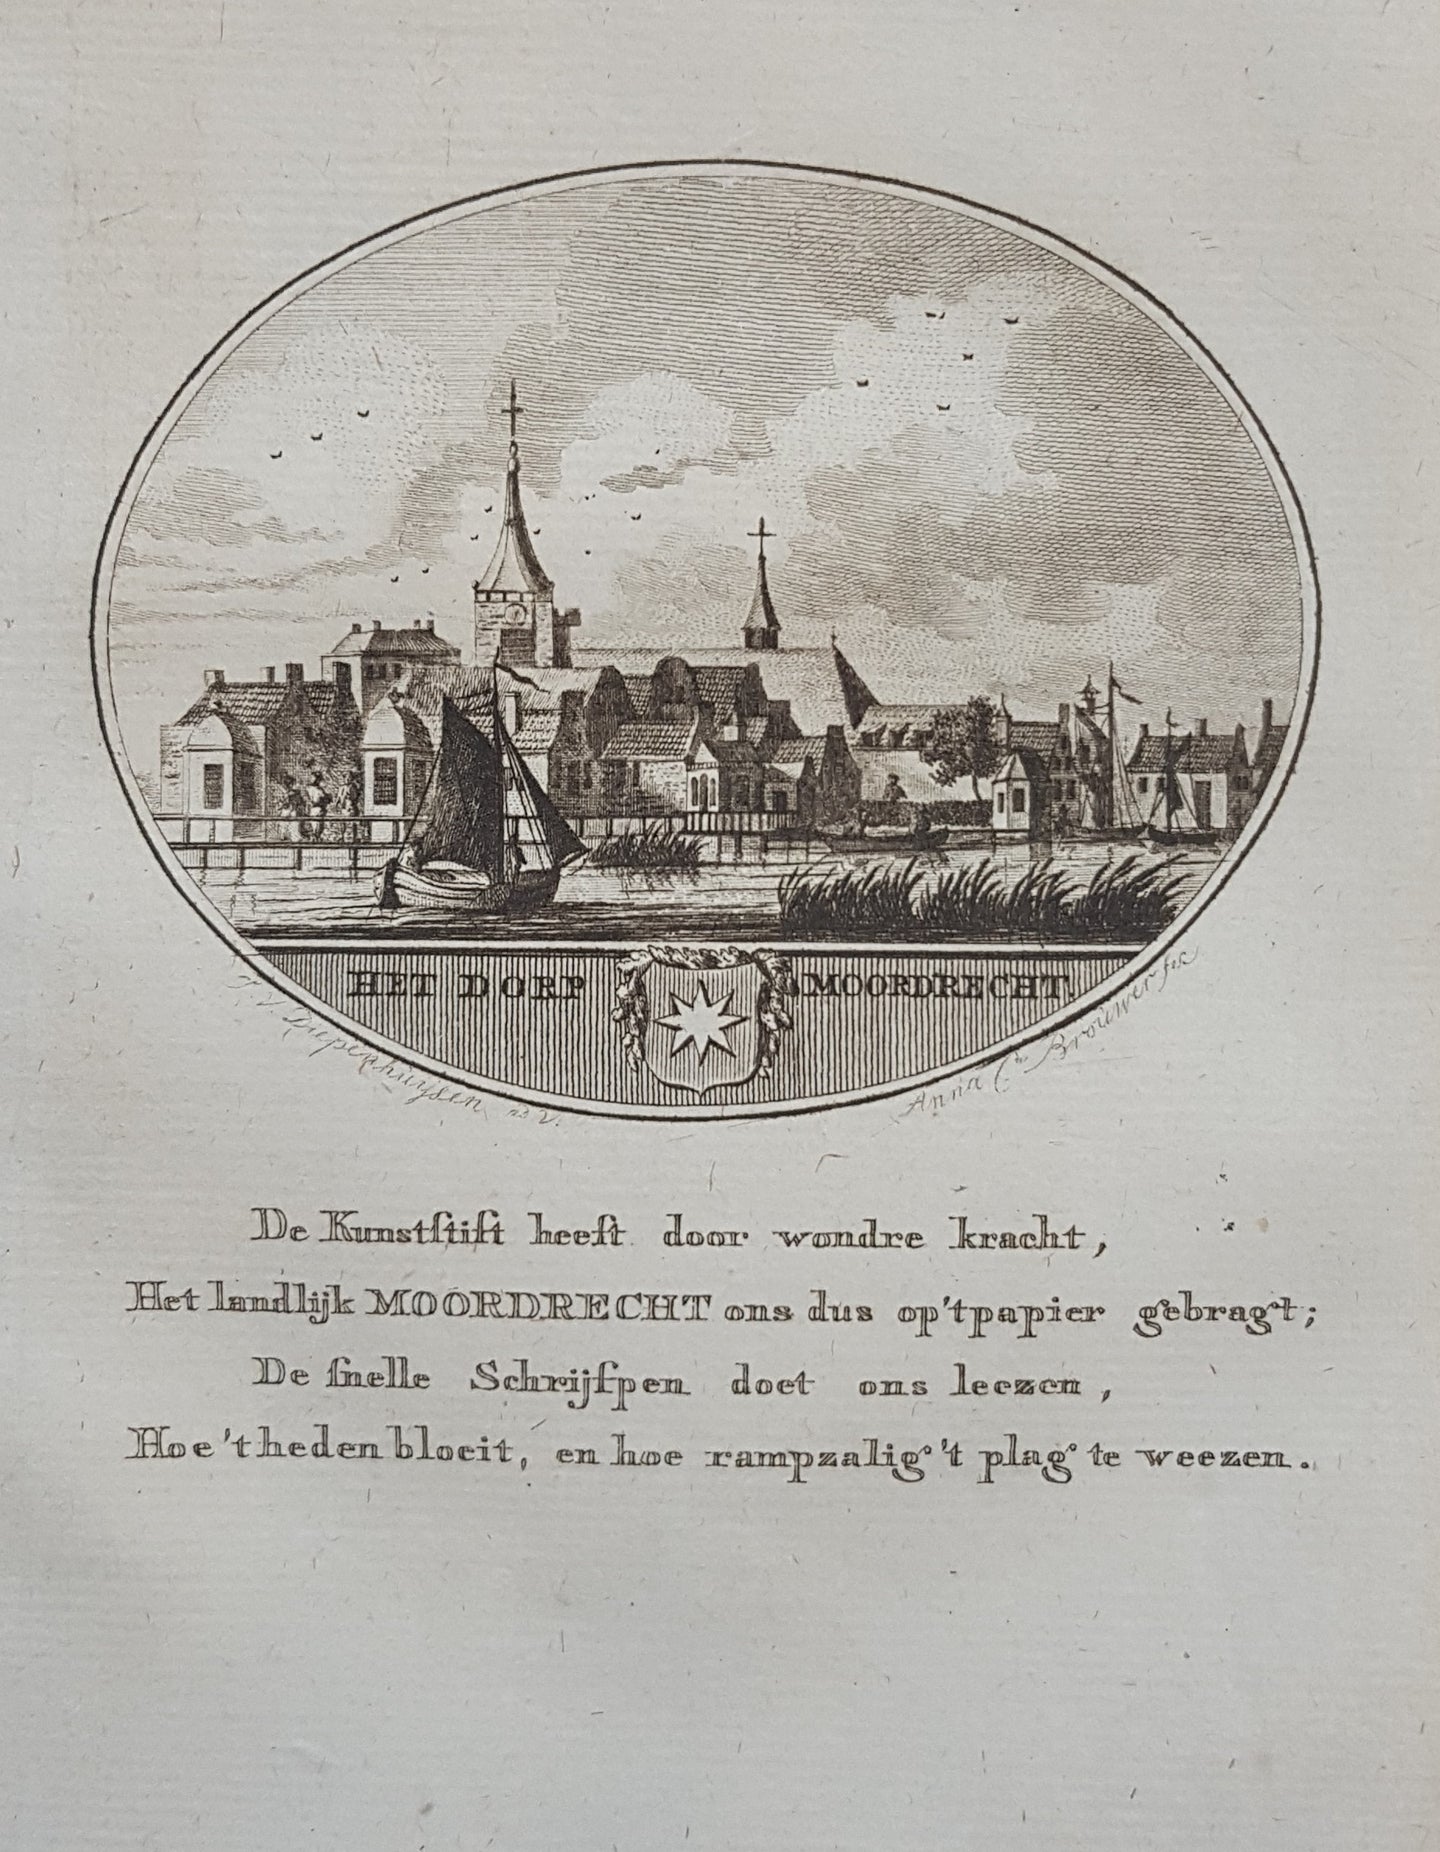 HET DORP MOORDRECHT.
Anna C. Brouwer fec
De Kunstſtift heeft door wondre kracht,
Het landlijk MOORDRECHT ons dus op 't papier gebragt;
De ſnelle Schrijfpen doet ons leezen,
Hoe 't heden bloeit, en hoe rampzalig 't plag te weezen.